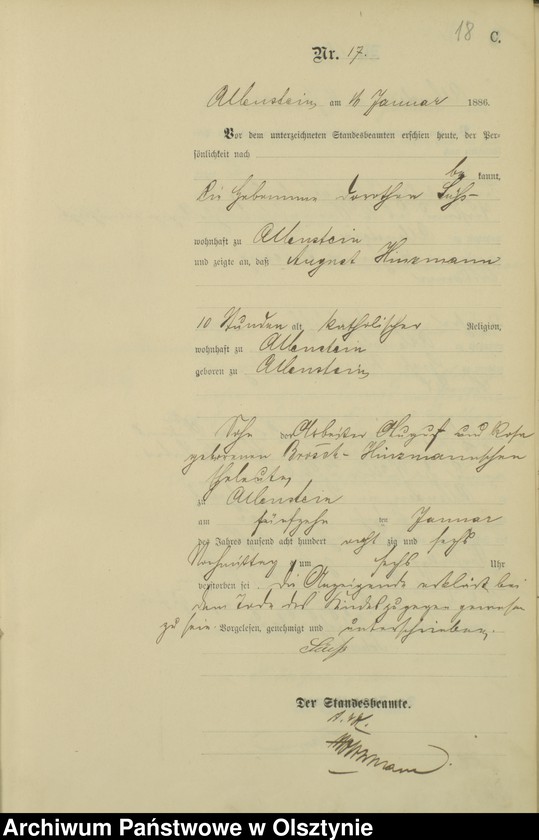 18 C.
Nr. 17.
Allenstein, am 16 Januar 1886.
Vor dem unterzeichneten Standesbeamten erschien heute, der Per-
sönlichkeit nach
be kannt,
die Hebamme Dorothea Süß
wohnhaft zu Allenstein
und zeigte an, daß August Hinzmann
10 Stunden alt, katholischer Religion,
wohnhaft zu Allenstein
geboren zu Allenstein,
Sohn der Arbeiter August und Rosa
geborenen Hinzmannschen
Eheleute,
zu Allenstein
am fünfzehn ten Januar
des Jahres tausend acht hundert acht zig und sechs
Nachmittag um sechs Uhr
verstorben sei. Die Anzeigende erklärt bei
dem Tode des Kindes zugegen gewesen
zu sein. Vorgelesen, genehmigt und unterschrieben.
Süß
Der Standesbeamte.
Archiwum Państwowe w Olsztynie